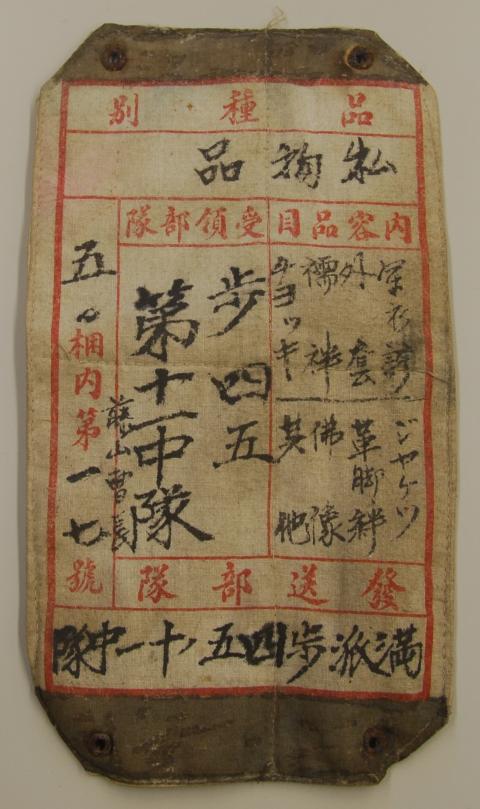 品種別
私物品
内容品目
軍衣袴一ジヤケツ
外套 革脚絆
襦袢 佛像
チヨツキ 其他
受領部隊
歩四五
第十一中隊
五〇梱内第一七號
曹長
發送部隊
満派歩四五ノ十一中隊